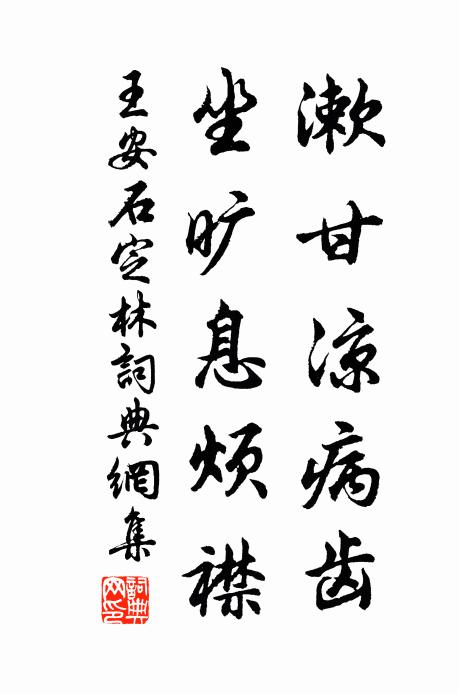 漱甘涼病齿
坐旷息烦襟
王安石定林詞典網集
詞典网印